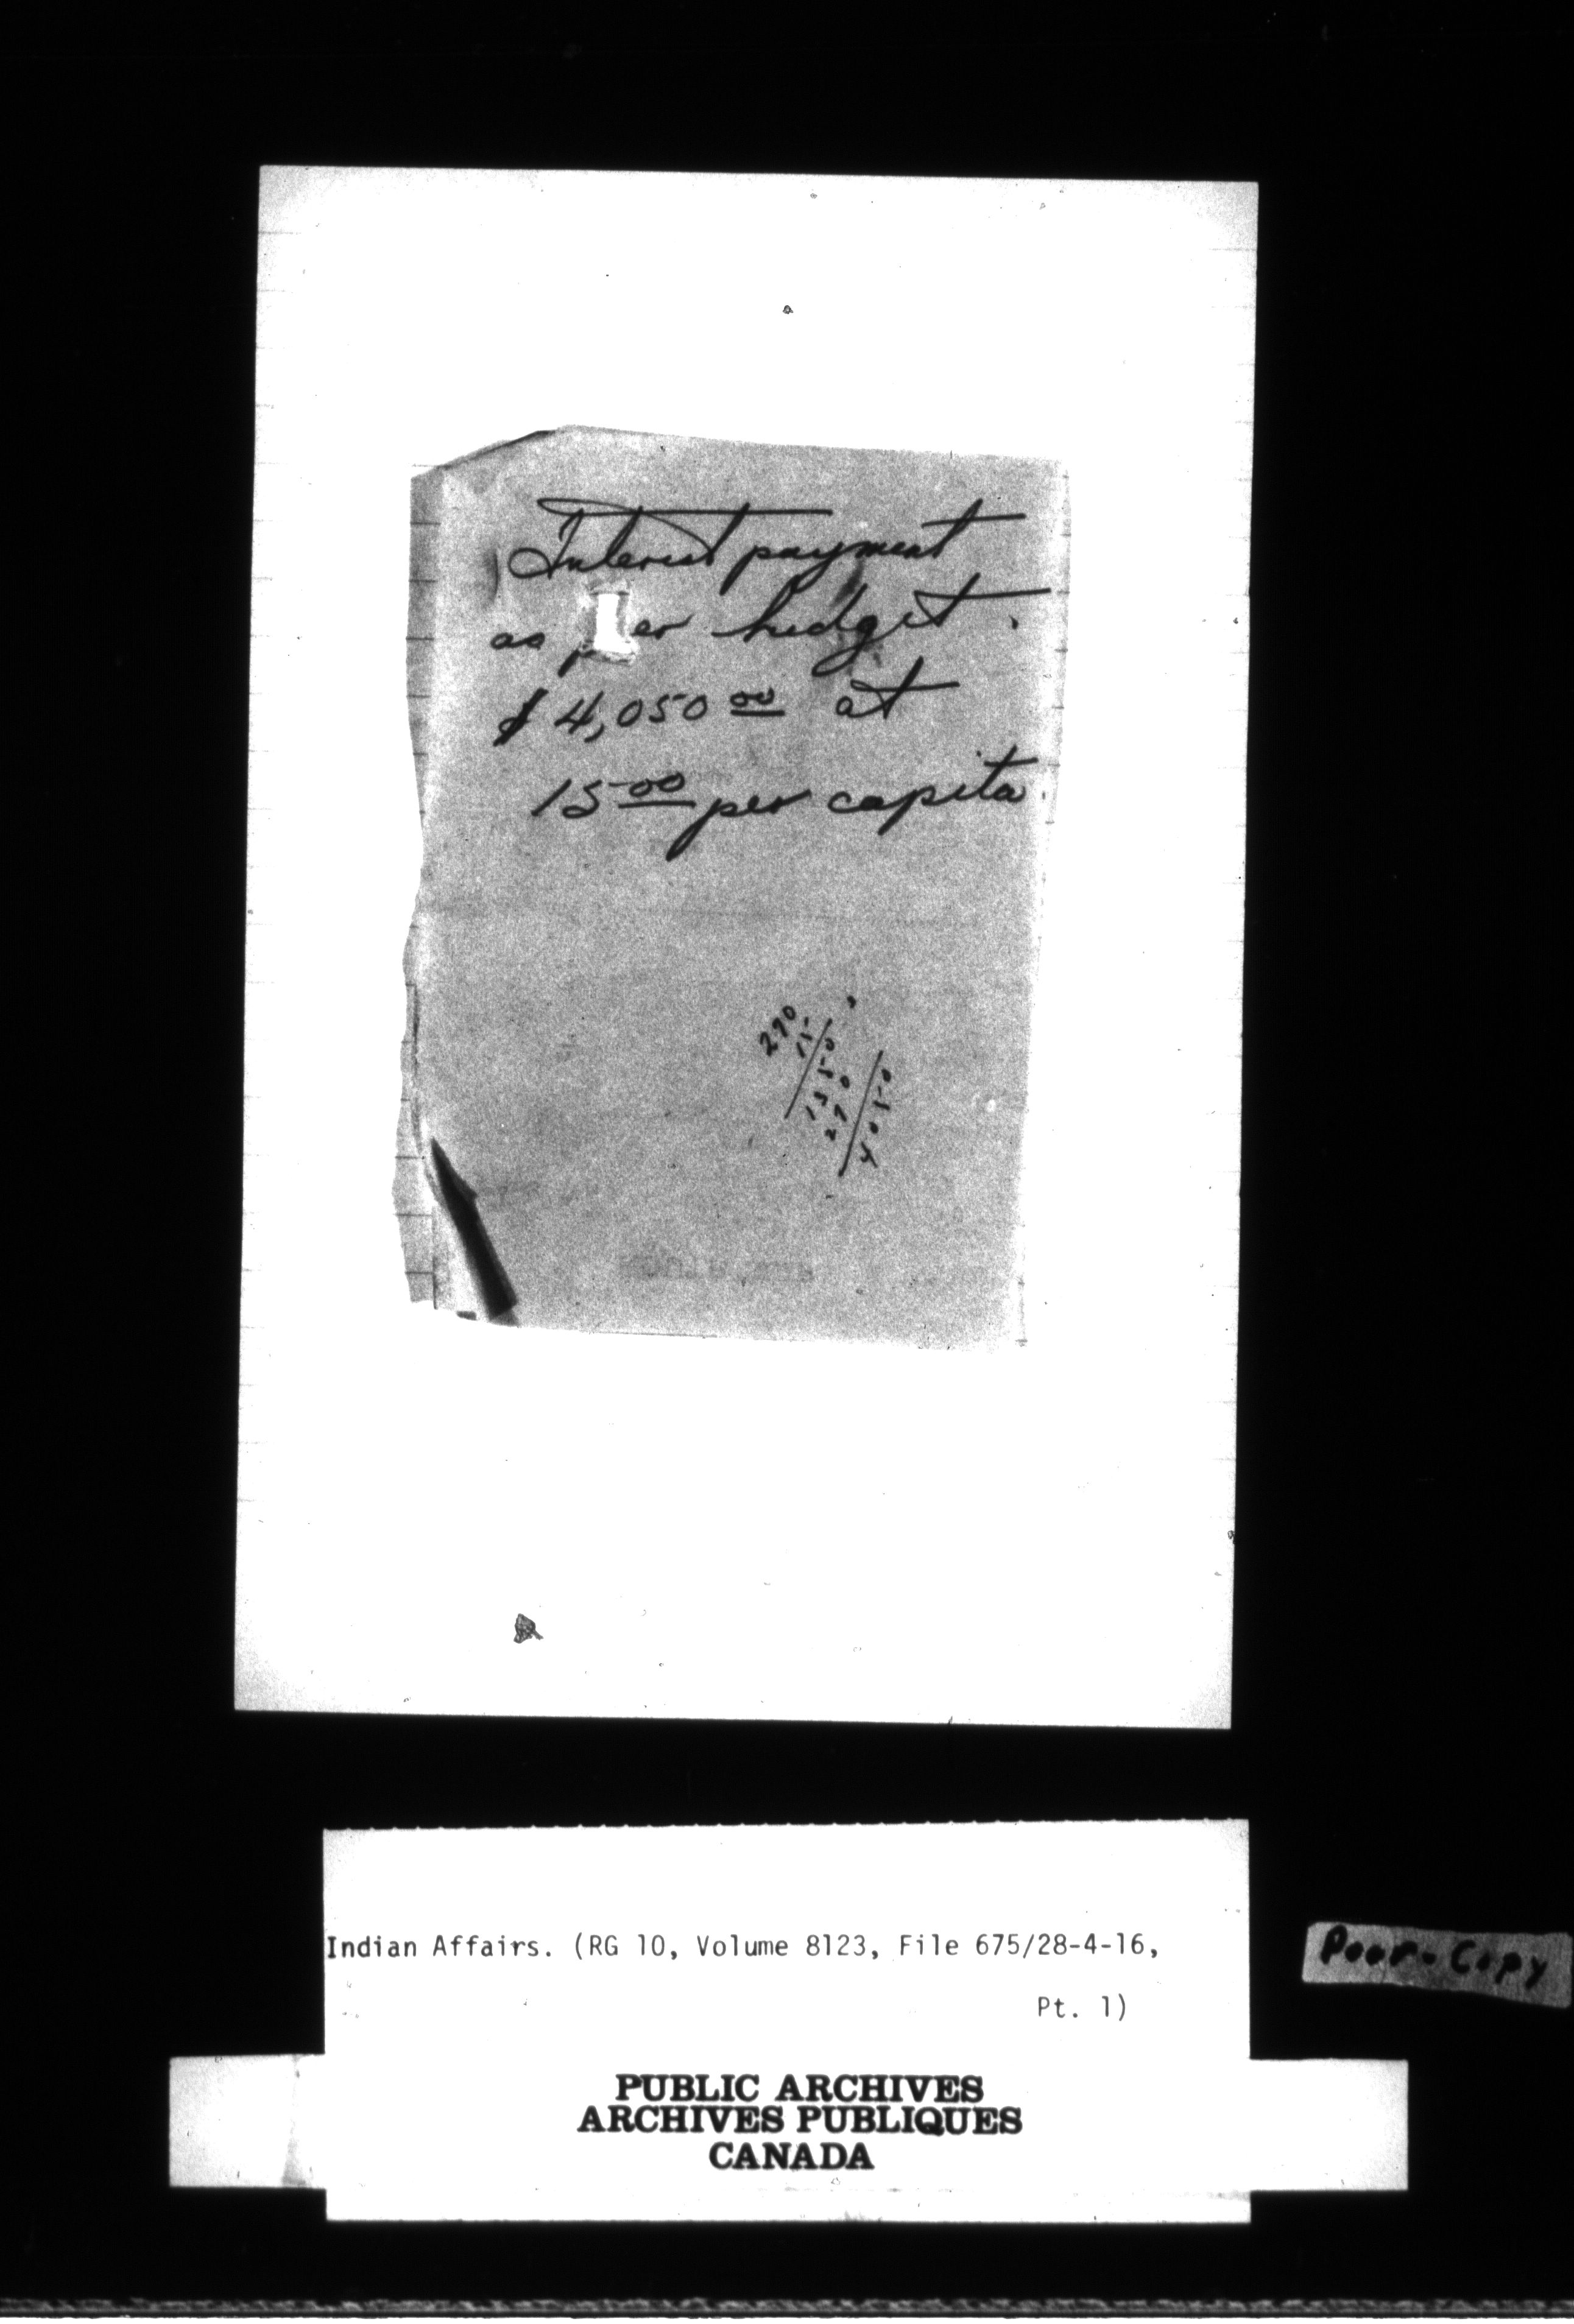 Interest payment
as per budget.
$4,050 00 at
15 00 per capita.
270
15
1350
270
4050
Indian Affairs. (RG 10, Volume 8123, File 675/28-4-16,
Pt. 1)
Poor-Copy
PUBLIC ARCHIVES
ARCHIVES PUBLIQUES
CANADA